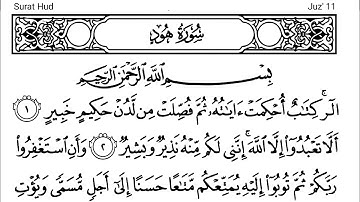 Surat Hud Juz' 11
سُورَةُ هُودٍ
بِسْمِ ٱللَّهِ ٱلرَّحْمَٰنِ ٱلرَّحِيمِ
الٓر ۚ كِتَٰبٌ أُحْكِمَتْ ءَايَٰتُهُۥ ثُمَّ فُصِّلَتْ مِن لَّدُنْ حَكِيمٍ خَبِيرٍ ١
أَلَّا تَعْبُدُوٓا۟ إِلَّا ٱللَّهَ ۚ إِنَّنِى لَكُم مِّنْهُ نَذِيرٌ وَبَشِيرٌ ٢ وَأَنِ ٱسْتَغْفِرُوا۟
رَبَّكُمْ ثُمَّ تُوبُوٓا۟ إِلَيْهِ يُمَتِّعْكُم مَّتَٰعًا حَسَنًا إِلَىٰٓ أَجَلٍ مُّسَمًّى وَيُؤْتِ